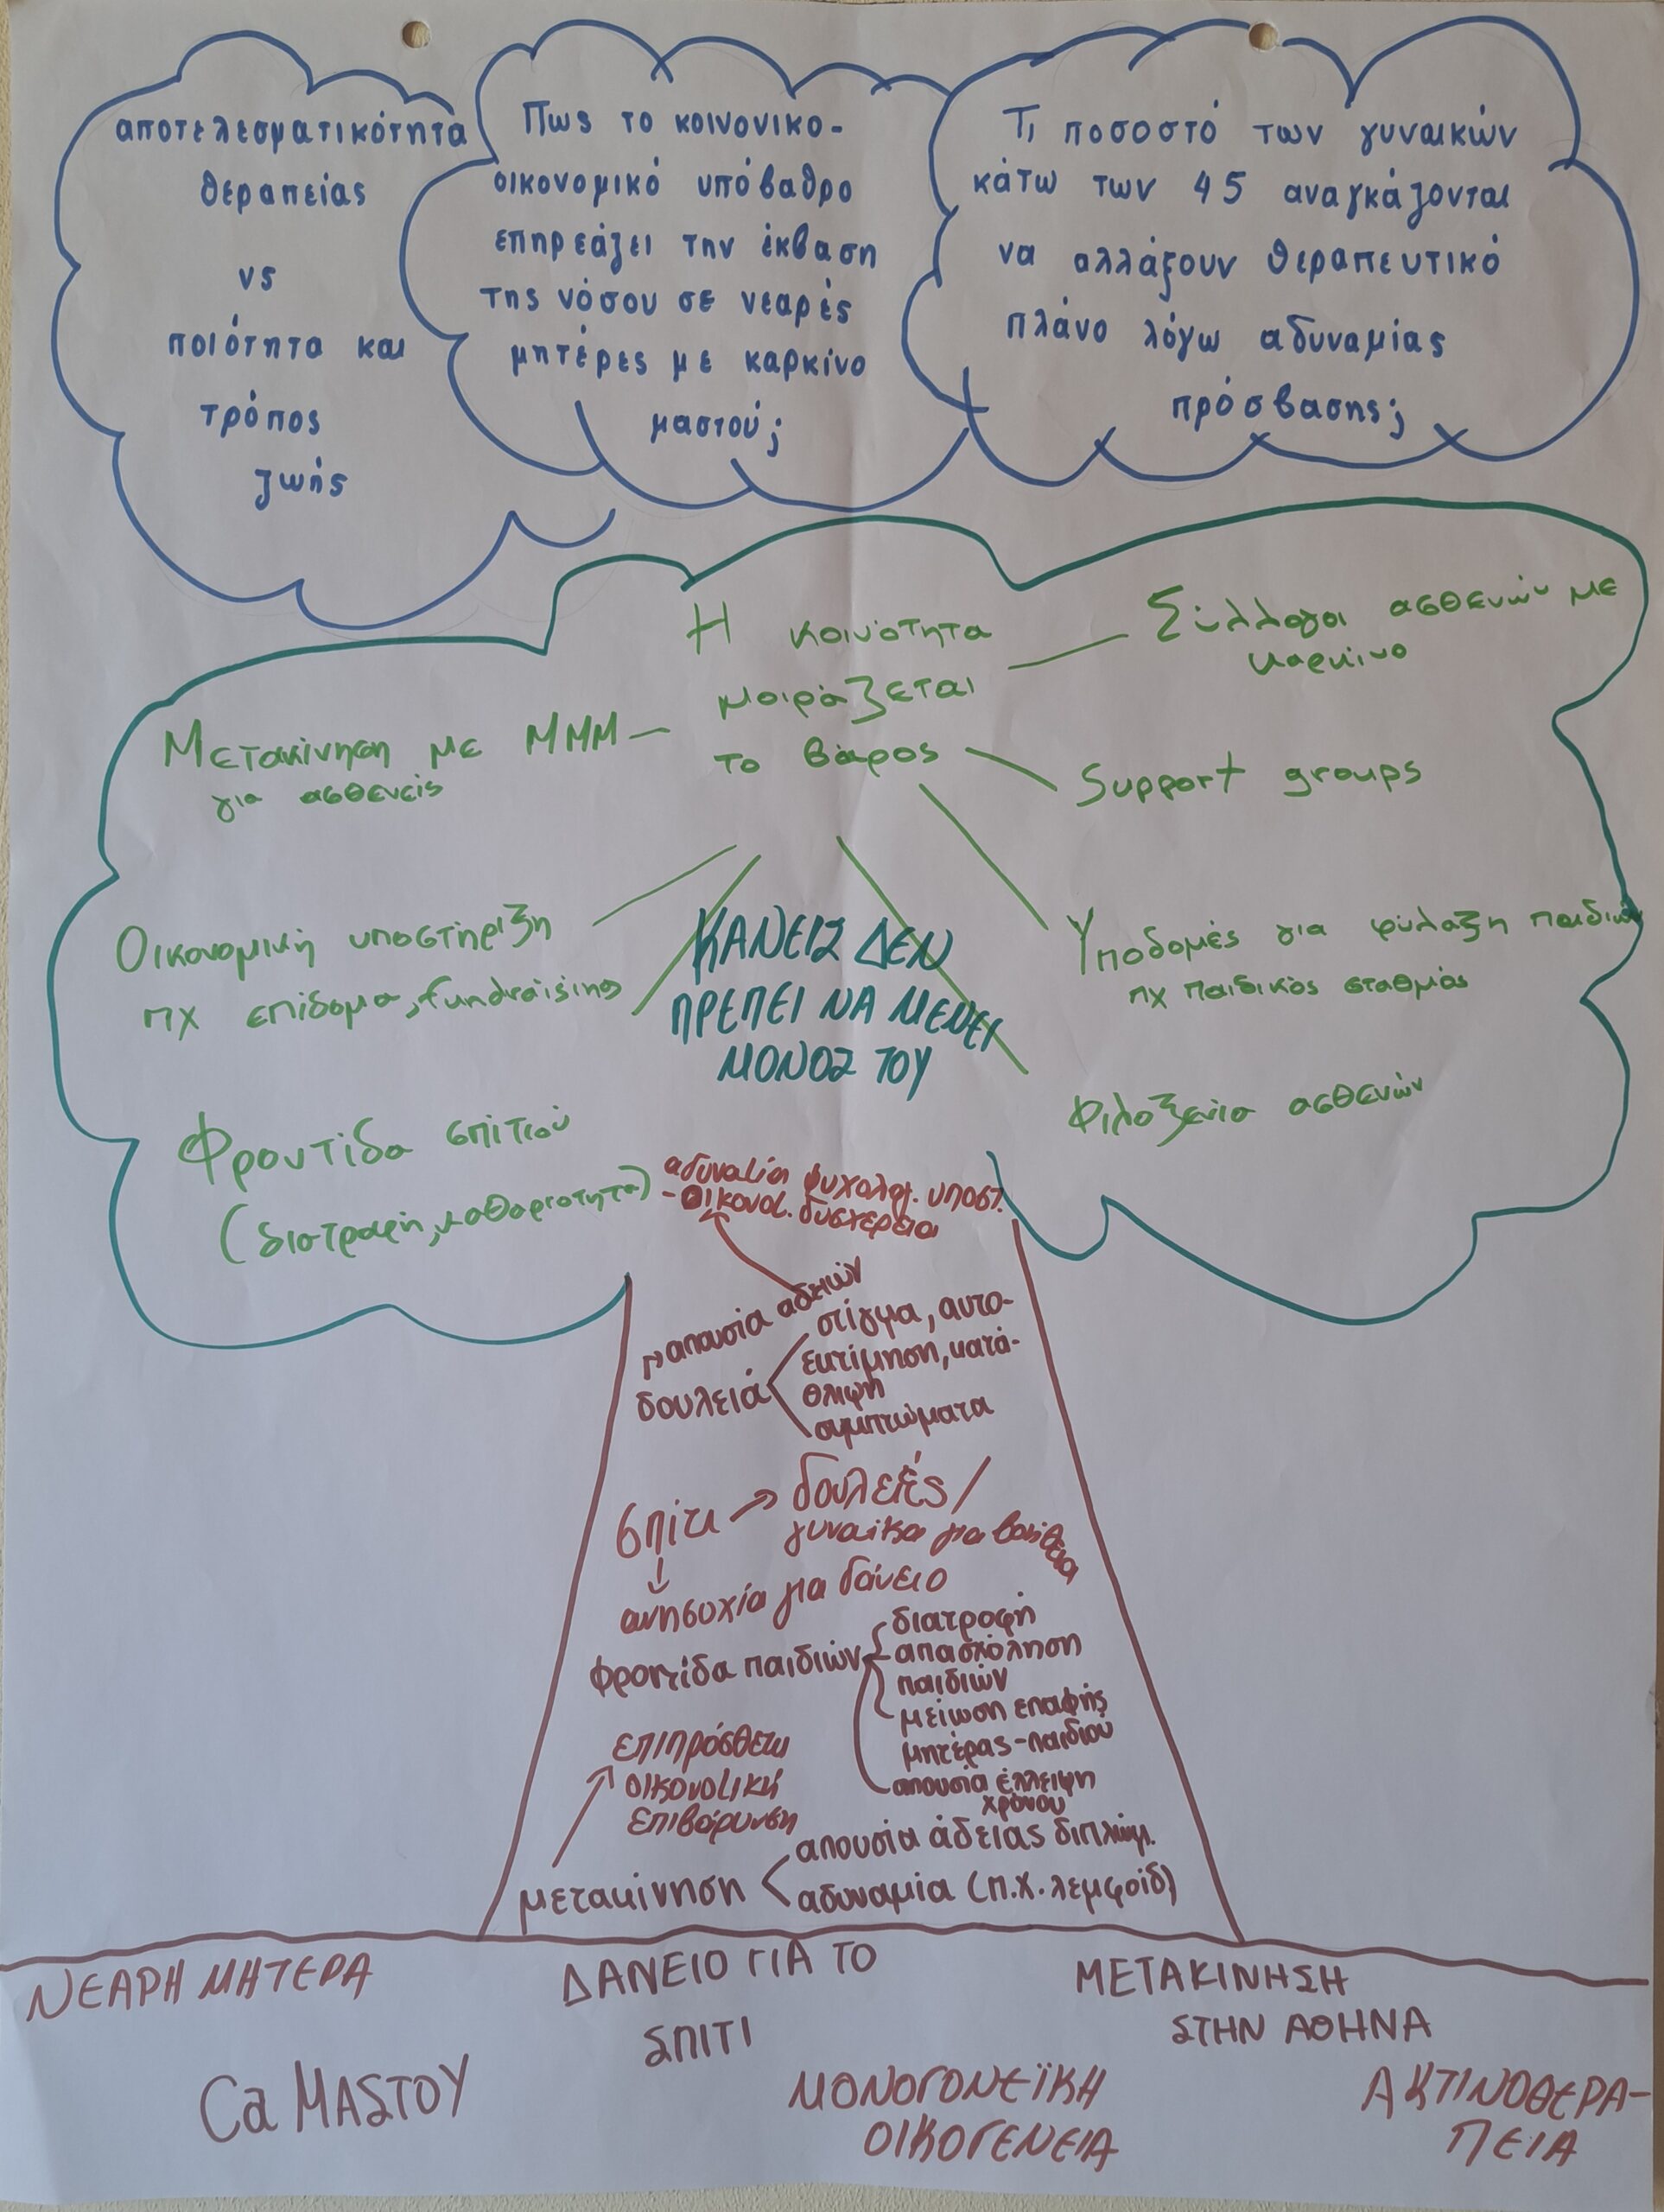 αποτελεσματικότητα
θεραπείας
vs
ποιότητα και
τρόπος
ζωής
Πως το κοινονικο-
οικονομικό υπόβαθρο
επηρεάζει την έκβαση
της νόσου σε νεαρές
μητέρες με καρκίνο
μαστού;
Τι ποσοστό των γυναικών
κάτω των 45 αναγκάζονται
να αλλάξουν θεραπευτικό
πλάνο λόγω αδυναμίας
πρόσβασης;
Η κοινότητα
μοιράζεται
το βάρος
Σύλλογοι ασθενών με
καρκίνο
Μετακίνηση με ΜΜΜ
για ασθενείς
Support groups
Οικονομική υποστήριξη
πχ επίδομα, fundraising
ΚΑΝΕΙΣ ΔΕΝ
ΠΡΕΠΕΙ ΝΑ ΜΕΝΕΙ
ΜΟΝΟΣ ΤΟΥ
Υποδομές για φύλαξη παιδιών
πχ παιδικός σταθμός
Φροντίδα σπιτιού
(διατροφή, καθαριότητα)
Φιλοξενία ασθενών
αδυναμία ψυχολογ. υποστ.
- οικονομ. δυσχέρεια
απουσία αδειών
δουλειά
στίγμα, αυτο-
εκτίμηση, κατά-
θλιψη
συμπτώματα
σπίτι → δουλειές /
γυναίκα για βοήθεια
ανησυχία για δάνειο
φροντίδα παιδιών
διατροφή
απασχόληση
παιδιών
μείωση επαφής
μητέρας-παιδιού
απουσία έλλειψη
χρόνου
επιπρόσθετη
οικονομική
επιβάρυνση
μετακίνηση
απουσία άδειας διπλώμ.
αδυναμία (π.χ. λεμφοίδ)
ΝΕΑΡΗ ΜΗΤΕΡΑ
ΔΑΝΕΙΟ ΓΙΑ ΤΟ
ΣΠΙΤΙ
ΜΕΤΑΚΙΝΗΣΗ
ΣΤΗΝ ΑΘΗΝΑ
Ca ΜΑΣΤΟΥ
ΜΟΝΟΓΟΝΕΪΚΗ
ΟΙΚΟΓΕΝΕΙΑ
ΑΚΤΙΝΟΘΕΡΑ-
ΠΕΙΑ